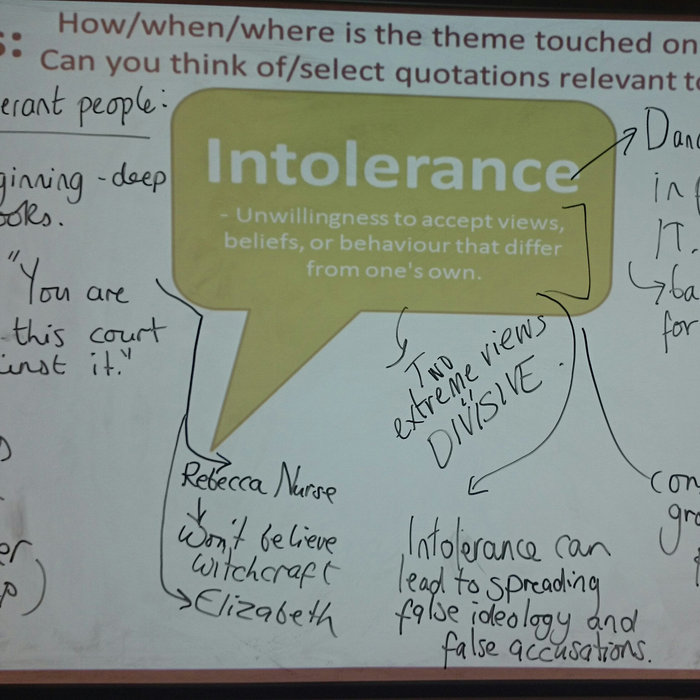 s: How/when/where is the theme touched on
Can you think of/select quotations relevant to
erant people:
ginning - deep
ooks.
"You are
this court
inst it."
er
Intolerance
- Unwillingness to accept views,
beliefs, or behaviour that differ
from one's own.
Two
extreme views
DIVISIVE.
Danc
in
IT.
ba
for
Rebecca Nurse
Won't believe
witchcraft
Elizabeth
Intolerance can
lead to spreading
false ideology and
false accusations.
con
gro